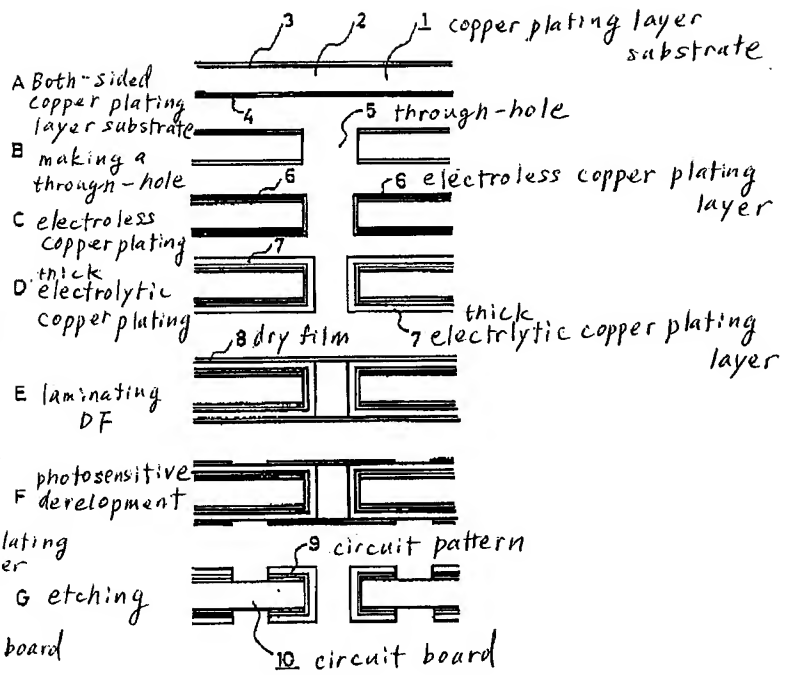 3
2
1 copper plating layer
substrate
A Both-sided
copper plating
layer substrate
4
5 through-hole
B making a
through-hole
6
6 electroless copper plating
layer
C electroless
copper plating
7
thick
D electrolytic
copper plating
thick
7 electrlytic copper plating
layer
8 dry film
E laminating
DF
photosensitive
F derelopment
lating
er
9 circuit pattern
G etching
board
10 circuit board